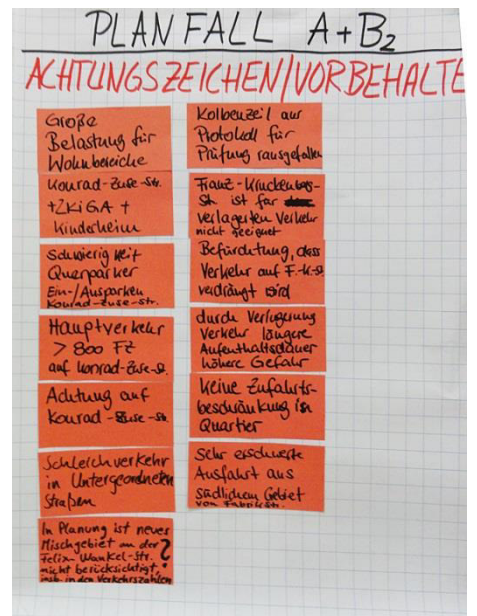 PLANFALL A+B2
ACHTUNGSZEICHEN/VORBEHALTE
Große
Belastung für
Wohnbereiche
Konrad-Zuse-Str.
+2KiGA +
Kinderheim
Schwierigkeit
Querparker
Ein-/Ausparken
Konrad-Zuse-Str.
Hauptverkehr
> 800 FZ
auf Konrad-Zuse-St.
Achtung auf
Konrad-Zuse-Str.
Schleichverkehr
in Untergeordneten
Straßen
In Planung ist neues
Mischgebiet an der
Felix-Wankel-Str.
nicht berücksichtigt,
insb. in den Verkehrszahlen
?
Kolbenzeil aus
Protokoll für
Prüfung rausgefallen
Franz-Kruckenberg-
Str. ist für
verlagerten Verkehr
nicht geeignet
Befürchtung, dass
Verkehr auf F.-K-St.
verdrängt wird
durch Verlagerung
Verkehr längere
Aufenthaltsdauer
höhere Gefahr
Keine Zufahrts-
beschränkung in
Quartier
Sehr erschwerte
Ausfahrt aus
südlichem Gebiet
von Fabrikstr.